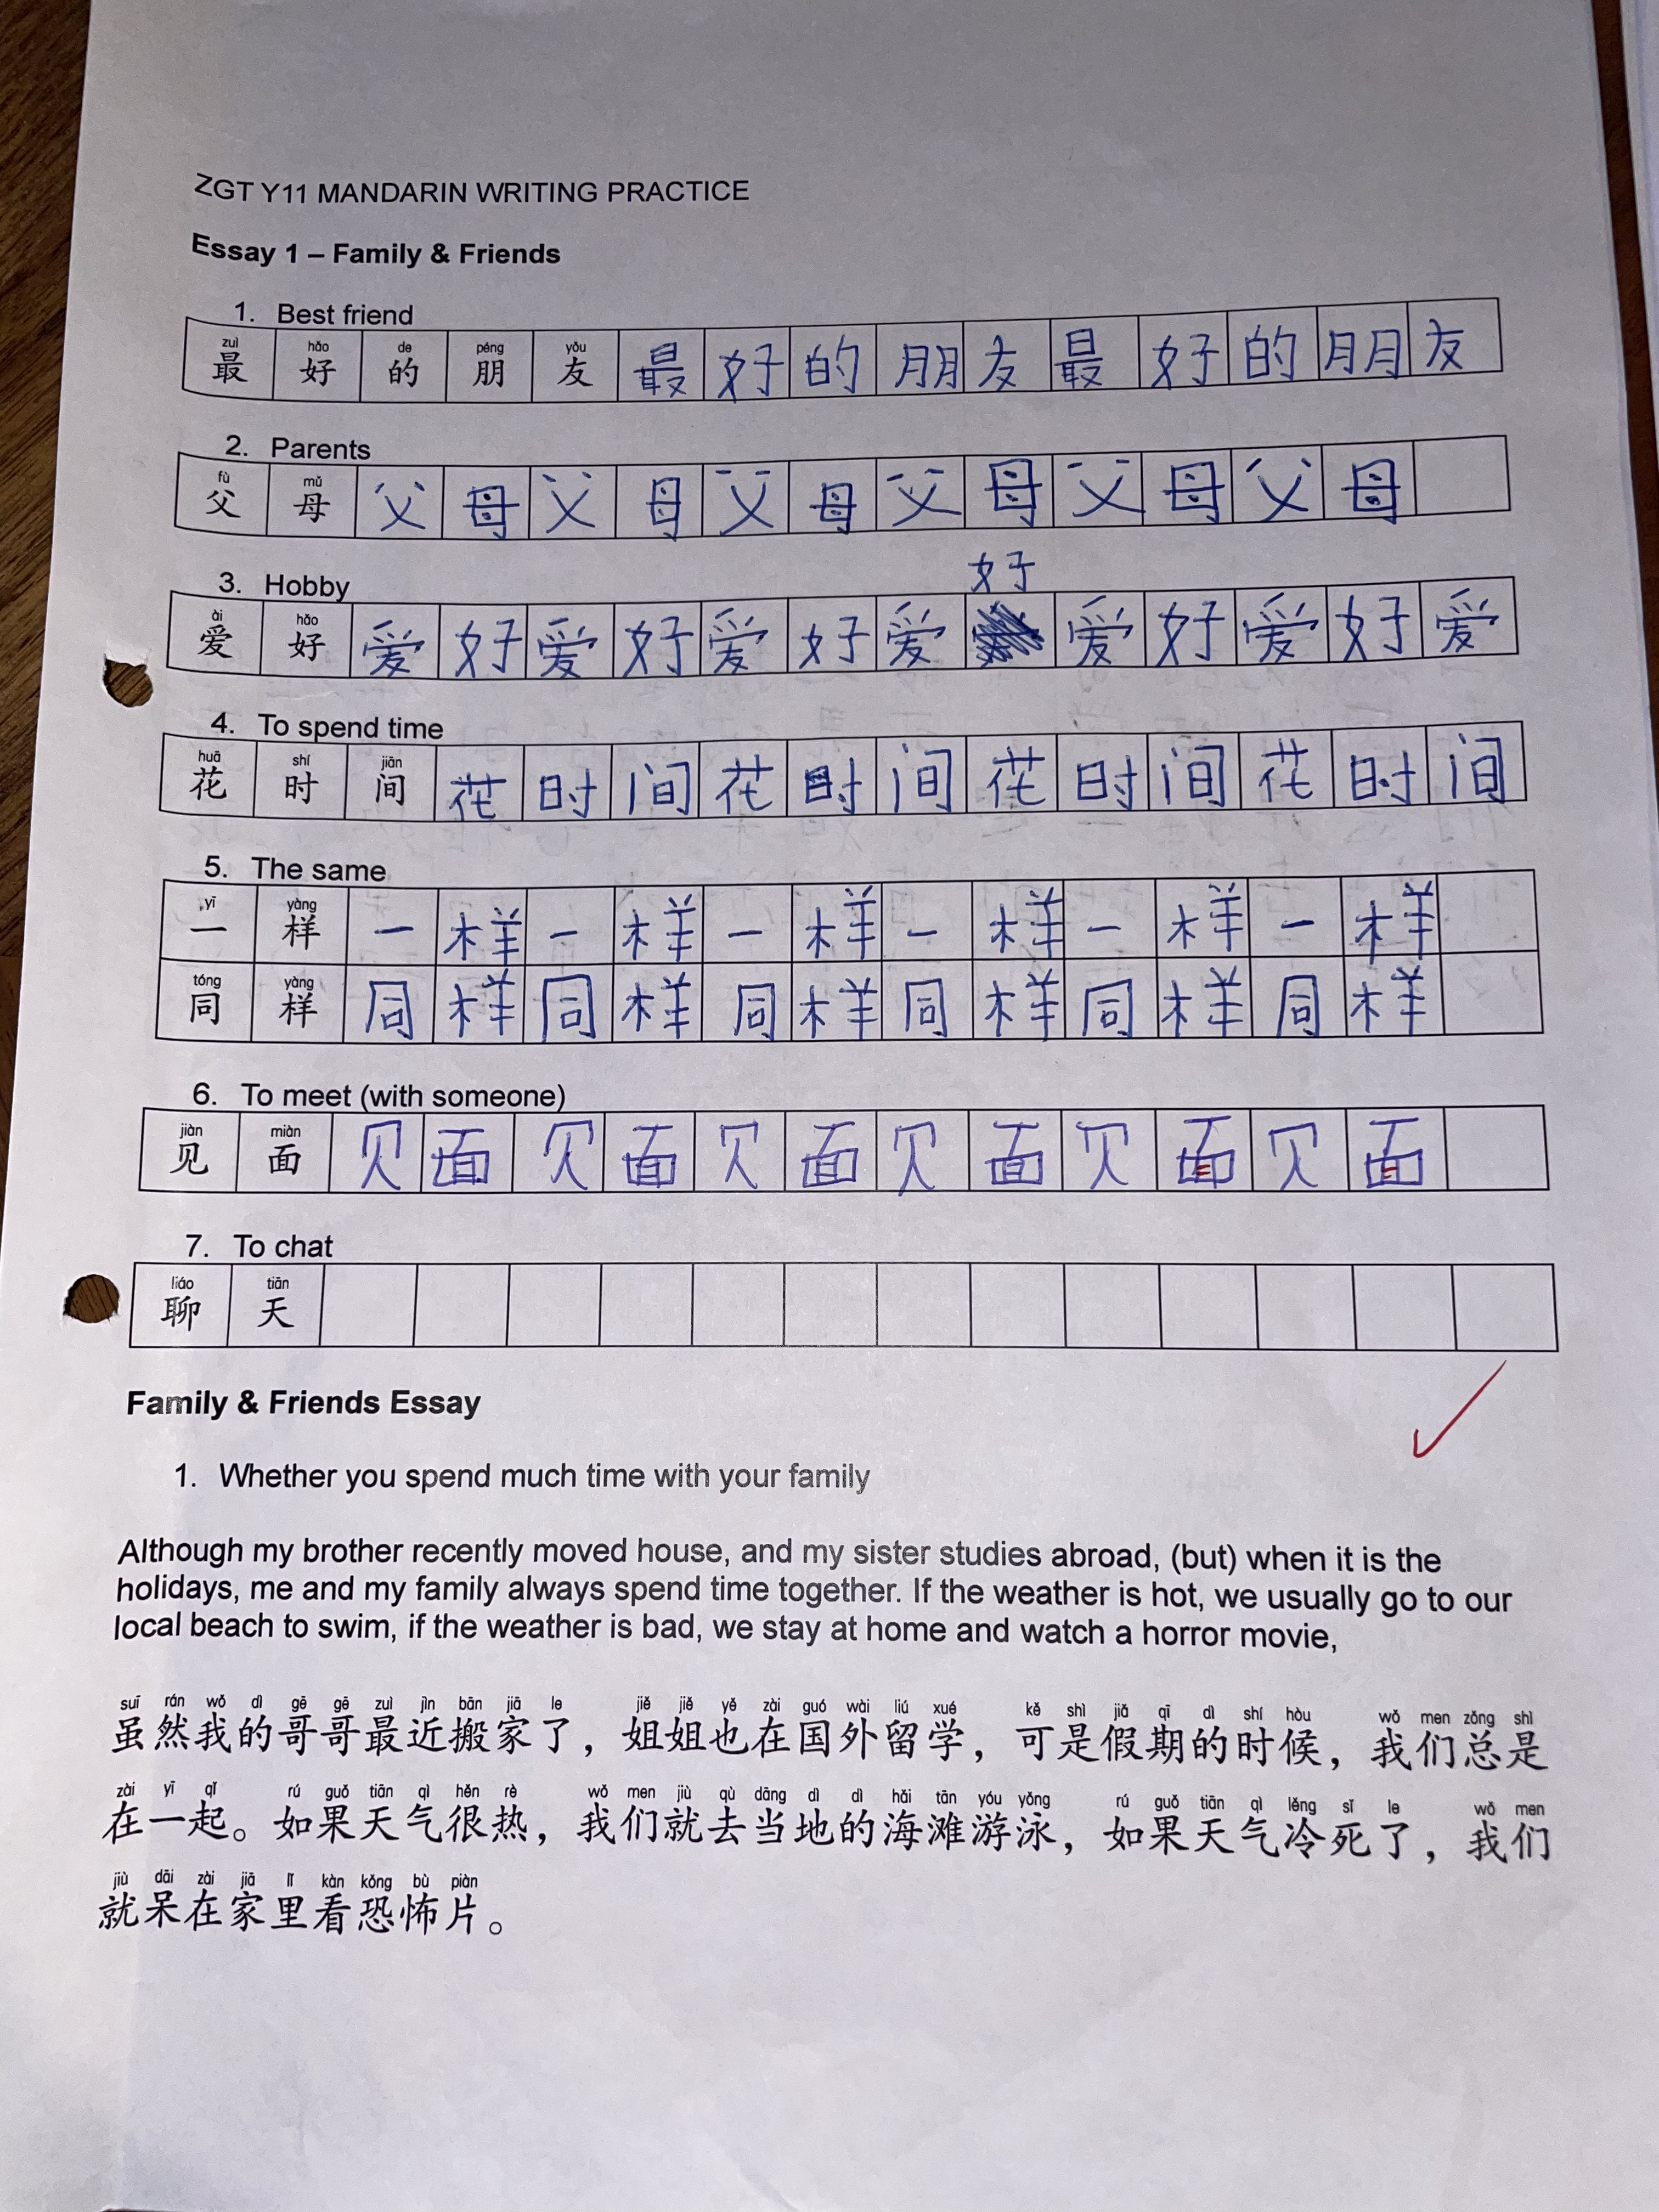 ZGT Y11 MANDARIN WRITING PRACTICE
Essay 1 – Family & Friends
1. Best friend
zuì hǎo de péng yǒu
最 好 的 朋 友 最 好 的 朋 友 最 好 的 朋 友
2. Parents
fù mǔ
父 母 父 母 父 母 父 母 父 母 父 母 父 母
好
3. Hobby
ài hǎo
爱 好 爱 好 爱 好 爱 好 爱 爱 好 爱 好 爱
4. To spend time
huā shí jiān
花 时 间 花 时 间 花 时 间 花 时 间 花 时 间
5. The same
yī yàng
一 样 一 样 一 样 一 样 一 样 一 样 一 样
tóng yàng
同 样 同 样 同 样 同 样 同 样 同 样 同 样
6. To meet (with someone)
jiàn miàn
见 面 见 面 见 面 见 面 见 面 见 面 见 面
7. To chat
liáo tiān
聊 天
Family & Friends Essay
1. Whether you spend much time with your family
Although my brother recently moved house, and my sister studies abroad, (but) when it is the
holidays, me and my family always spend time together. If the weather is hot, we usually go to our
local beach to swim, if the weather is bad, we stay at home and watch a horror movie,
suī rán wǒ dì gē gē zuì jìn bān jiā le jiě jiě yě zài guó wài liú xué kě shì jiǎ qī dì shí hòu wǒ men zǒng shì
虽然我的哥哥最近搬家了，姐姐也在国外留学，可是假期的时候，我们总是
zài yī qǐ rú guǒ tiān qì hěn rè wǒ men jiù qù dāng dì dì hǎi tān yóu yǒng rú guǒ tiān qì lěng sǐ le wǒ men
在一起。如果天气很热，我们就去当地的海滩游泳，如果天气冷死了，我们
jiù dāi zài jiā lǐ kàn kǒng bù piàn
就呆在家里看恐怖片。